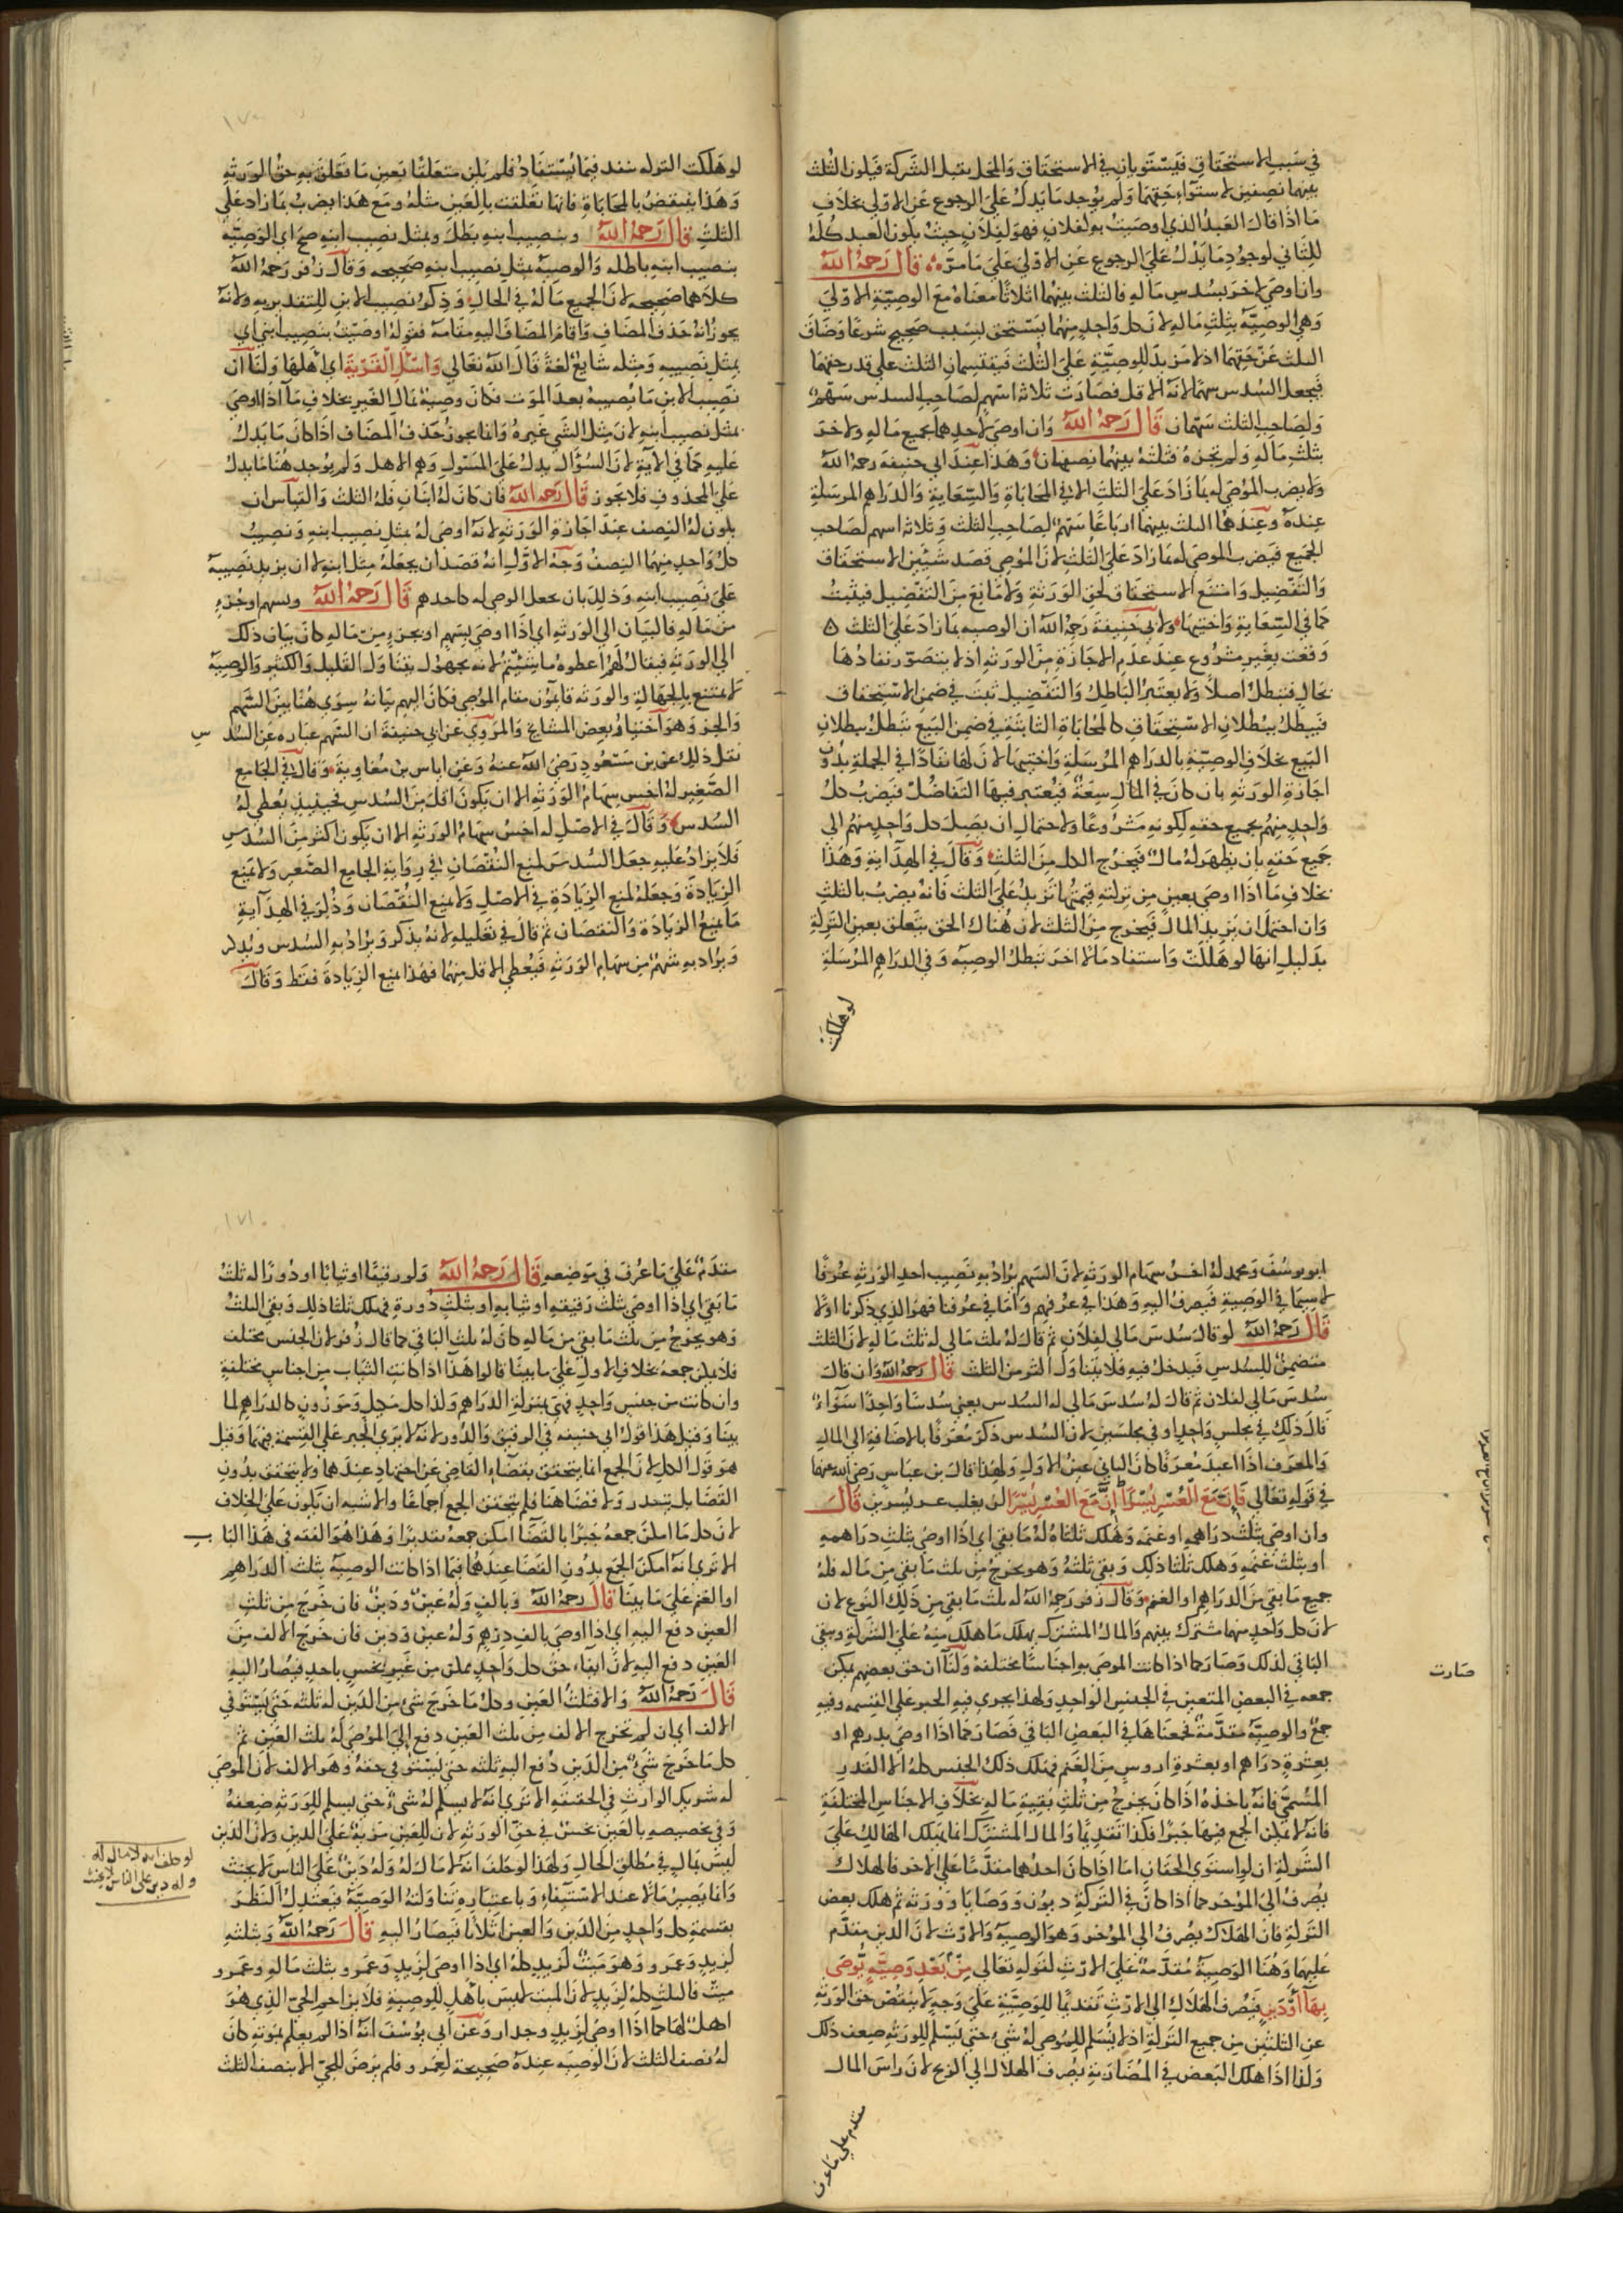 في سبب الاستحقاق فيستويان في الاستحقاق والمحل يقبل الشركة فيكون الثلث
بينهما نصفين لاستواء حقهما ولم يوجد ما يدل على الرجوع عن الاولى بخلاف
ما اذا قال العبد الذي اوصيت به لفلان فهو لفلان حيث يكون العبد كله
للثاني لوجود ما يدل على الرجوع عن الاول على ما مر قال رحمه الله
وان اوصى لاخر بسدس ماله فالثلث بينهما اثلاثا معناه مع الوصية الاولى
وهي الوصية بثلث ماله لان كل واحد منهما يستحق بسبب صحيح شرعا وضاق
الثلث عن حقهما اذ لا مزيد للوصية على الثلث فيقتسمان الثلث على قدر حقهما
فيجعل السدس سهما لانه الاقل فصارت ثلاثة اسهم لصاحب السدس سهم
ولصاحب الثلث سهمان قال رحمه الله وان اوصى لاحدهما بجميع ماله ولاخر
بثلث ماله ولم تجز فثلثه بينهما نصفان وهذا عند ابي حنيفة رحمه الله
ولا يضرب الموصى له بما زاد على الثلث الا في المحاباة والسعاية والدراهم المرسلة
عنده وعندهما الثلث بينهما ارباعا سهم لصاحب الثلث وثلاثة اسهم لصاحب
الجميع فيضرب الموصى له بما زاد على الثلث لان الموصي قصد شيئين الاستحقاق
والتفضيل وامتنع الاستحقاق لحق الورثة ولا مانع من التفضيل فيثبت
كما في السعاية واختيها ولابي حنيفة رحمه الله ان الوصية بما زاد على الثلث ه
وقعت بغير مشروع عند عدم الاجازة من الورثة اذ لا يتصور نفاذها
بحال فتبطل اصلا ولا يعتبر الباطل والتفضيل ثبت في ضمن الاستحقاق
فيبطل ببطلان الاستحقاق كالمحاباة الثابتة في ضمن البيع تبطل ببطلان
البيع بخلاف الوصية بالدراهم المرسلة واختيها لان لها نفاذا في الجملة بدون
اجازة الورثة بان كان في المال سعة فيعتبر فيها التفاضل فيضرب كل
واحد منهم بجميع حقه لكونه مشروعا ولاحتمال ان يصل كل واحد منهم الى
جميع حقه بان يظهر له مال فيخرج الكل من الثلث وقال في الهداية وهذا
بخلاف ما اذا اوصى بعين من تركته قيمتها تزيد على الثلث فانه يضرب بالثلث
وان احتمل ان يزيد المال فيخرج من الثلث لان هناك الحق يتعلق بعين التركة
بدليل انها لو هلكت واستفاد مالا اخر تبطل الوصية وفي الدراهم المرسلة
لو هلكت
لو هلكت التركة تنفذ فيما يستفاد فلم يكن متعلقا بعين ما تعلق به حق الورثة
وهذا ينتقض بالمحاباة فانها تعلقت بالعين مثله ومع هذا يضرب بما زاد على
الثلث قال رحمه الله وبنصيب ابنه بطل وبمثل نصيب ابنه صح اي الوصية
بنصيب ابنه باطلة والوصية بمثل نصيب ابنه صحيحة وقال زفر رحمه الله
كلاهما صحيحة لان الجميع ماله في الحال وذكر نصيب الابن للتقدير به ولانه
يجوز انه حذف المضاف واقام المضاف اليه مقامه فقوله اوصيت بنصيب ابني اي
بمثل نصيبه ومثله شايع لغة قال الله تعالى واسئل القرية اي اهلها ولنا ان
نصيب الابن ما يصيبه بعد الموت فكان وصية بمال الغير بخلاف ما اذا اوصى
بمثل نصيب ابنه لان مثل الشي غيره وانما يجوز حذف المضاف اذا كان ما يدل
عليه كما في الاية لان السؤال يدل على المسئول وهو الاهل ولم يوجد هنا ما يدل
على المحذوف فلا يجوز قال رحمه الله فان كان له ابنان فله الثلث والقياس ان
يكون له النصف عند اجازة الورثة لانه اوصى له بمثل نصيب ابنه ونصيب
كل واحد منهما النصف وجه الاول انه قصد ان يجعله مثل ابنه لا ان يزيد نصيبه
على نصيب ابنه وذلك بان يجعل الموصى له كاحدهم قال رحمه الله وبسهم او جزء
من ماله فالبيان الى الورثة اي اذا اوصى بسهم او بجزء من ماله كان بيان ذلك
الى الورثة فيقال لهم اعطوه ما شئتم لانه مجهول يتناول القليل والكثير والوصية
لا تمتنع بالجهالة والورثة قايمون مقام الموصي فكان اليهم بيانه سوى هنا بين السهم
والجزء وهو اختيار بعض المشايخ والمروي عن ابي حنيفة ان السهم عبارة عن السد س
نقل ذلك عن بن مسعود رضي الله عنه وعن اياس بن معاوية وقال في الجامع
الصغير له اخس سهام الورثة الا ان يكون اقل من السدس فحينئذ يعطى له
السدس وقال في الاصل له اخس سهام الورثة الا ان يكون اكثر من السدس
فلا يزاد عليه جعل السدس لمنع النقصان في رواية الجامع الصغير ولا يمنع
الزيادة وجعله لمنع الزيادة في الاصل ولا يمنع النقصان وذكر في الهداية
ما يمنع الزيادة والنقصان ثم قال في تعليله لانه يذكر ويراد به السدس ويذكر
ويراد به سهم من سهام الورثة فيعطى الاقل منهما فهذا يمنع الزيادة فقط وقال
ابو يوسف ومحمد له اخس سهام الورثة لان السهم يراد به نصيب احد الورثة عرفا
لا سيما في الوصية فيصرف اليه وهذا في عرفهم واما في عرفنا فهو الذي ذكرنا اولا
قال رحمه الله لو قال سدس مالي لفلان ثم قال له ثلث مالي له ثلث ماله لان الثلث
متضمن للسدس فيدخل فيه فلا يتناول اكثر من الثلث قال رحمه الله وان قال
سدس مالي لفلان ثم قال له سدس مالي له السدس يعني سدسا واحدا سواء
قال ذلك في مجلس واحد او في مجلسين لان السدس ذكر معرفا بالاضافة الى المال
والمعرف اذا اعيد معرفا كان الثاني عين الاول ولهذا قال بن عباس رضي الله عنهما
في قوله تعالى فان مع العسر يسرا ان مع العسر يسرا لن يغلب عسر يسرين قال
وان اوصى بثلث دراهمه او غنمه وهلك ثلثاه له ما بقي اي اذا اوصى بثلث دراهمه
او بثلث غنمه وهلك ثلثا ذلك وبقي ثلثه وهو يخرج من ثلث ما بقي من ماله فله
جميع ما بقي من الدراهم او الغنم وقال زفر رحمه الله له ثلث ما بقي من ذلك النوع لان
لان كل واحد منهما مشترك بينهم والمال المشترك يهلك ما هلك منه على الشركة ويبقى
الباقي كذلك وصار كما اذا كانت الموصى به اجناسا مختلفة ولنا ان حق بعضهم يمكن
صارت
جمعه في البعض المتعين في الجنس الواحد ولهذا يجري فيه الجبر على القسمة وفيه
جمع والوصية مقدمة فجمعناها في البعض الباقي فصار كما اذا اوصى بدرهم او
بعشرة دراهم او بعشرة اروس من الغنم فهلك ذلك الجنس كله الا القدر
المسمى فانه ياخذه اذا كان يخرج من ثلث بقية ماله بخلاف الاجناس المختلفة
فانه لا يمكن الجمع فيها جبرا فكذا تقديما والمال المشترك انما يهلك الهالك على
الشركة ان لو استوى الحقان اما اذا كان احدهما مقدما على الاخر فالهلاك
يصرف الى المؤخر كما اذا كان في التركة ديون ووصايا وورثة ثم هلك بعض
التركة فان الهلاك يصرف الى الموخر وهو الوصية والارث لان الدين مقدم
عليهما وهنا الوصية مقدمة على الارث لقوله تعالى من بعد وصية يوصى
بها او دين فيصرف الهلاك الى الارث تقديما للوصية على وجه لا ينقص حق الورثة
عن الثلثين من جميع التركة اذ لا يسلم للموصى له شيء حتى يسلم للورثة ضعف ذلك
ولذا اذا هلك البعض في المضاربة يصرف الهلاك الى الربح لان راس المال
مقدم على ما عرف
مقدم على ما عرف في موضعه قال رحمه الله ولو رقيقا او ثيابا او دورا له ثلث
ما بقي اي اذا اوصى بثلث رقيقه او ثيابه او بثلث دوره فهلك ثلثا ذلك وبقي الثلث
وهو يخرج من ثلث ما بقي من ماله كان له ثلث الباقي كما قال زفر لان الجنس مختلف
فلا يمكن جمعه بخلاف الاول على ما بينا قالوا هذا اذا كانت الثياب من اجناس مختلفة
وان كانت من جنس واحد فهي بمنزلة الدراهم ولذا كل مكيل وموزون كالدراهم لما
بينا وقيل هذا قول ابي حنيفة في الرقيق والدور لانه لا يرى الجبر على القسمة فيهما وقيل
هو قول الكل لان الجمع انما يتحقق بقضاء القاضي عن اجتهاد عندهما ولا يتحقق بدون
القضا بل يتعذر ولا قضا هنا فلم يتحقق الجمع اجماعا والاشبه ان يكون على الخلاف
لان كل ما امكن جمعه جبرا بالقضا امكن جمعه تقديرا وهذا هو الفقه في هذا البا ب
الا ترى انه امكن الجمع بدون القضا عندهما فيما اذا كانت الوصية بثلث الدراهم
او الغنم على ما بينا قال رحمه الله وبالف وله عين ودين فان خرج من ثلث
العين دفع اليه اي اذا اوصى بالف درهم وله عين ودين فان خرج الالف من
العين دفع اليه لان ايفاء حق كل واحد ممكن من غير بخس باحد فيصار اليه
قال رحمه الله والا فثلث العين وكل ما خرج شي من الدين له ثلثه حتى يستوفي
الالف اي ان لم تخرج الالف من ثلث العين دفع الى الموصى له ثلث العين ثم
كل ما خرج شي من الدين دفع اليه ثلثه حتى يستوفي حقه وهو الالف لان الموصى
له شريك الوارث في الحقيقة الا ترى انه لا يسلم له شيء حتى يسلم للورثة ضعفه
وفي تخصيصه بالعين بخس في حق الورثة لان للعين مزية على الدين ولان الدين
ليس بمال في مطلق الحال ولهذا لو حلف انه لا مال له وله دين على الناس لا يحنث
لو حلف انه لا مال له
وله دين على الناس لا يحنث
وانما يصير مالا عند الاستيفاء وباعتباره تناولته الوصية فيعتدل النظر
بقسمة كل واحد من الدين والعين اثلاثا فيصار اليه قال رحمه الله وبثلثه
لزيد وعمرو وهو ميت لزيد كله اي اذا اوصى لزيد وعمرو بثلث ماله وعمرو
ميت فالثلث كله لزيد لان الميت ليس باهل للوصية فلا يزاحم الحي الذي هو
اهل لها كما اذا اوصى لزيد وجدار وعن ابي يوسف انه اذا لم يعلم بموته كان
له نصف الثلث لان الوصية عنده صحيحة لعمرو فلم يرض للحي الا بنصف الثلث